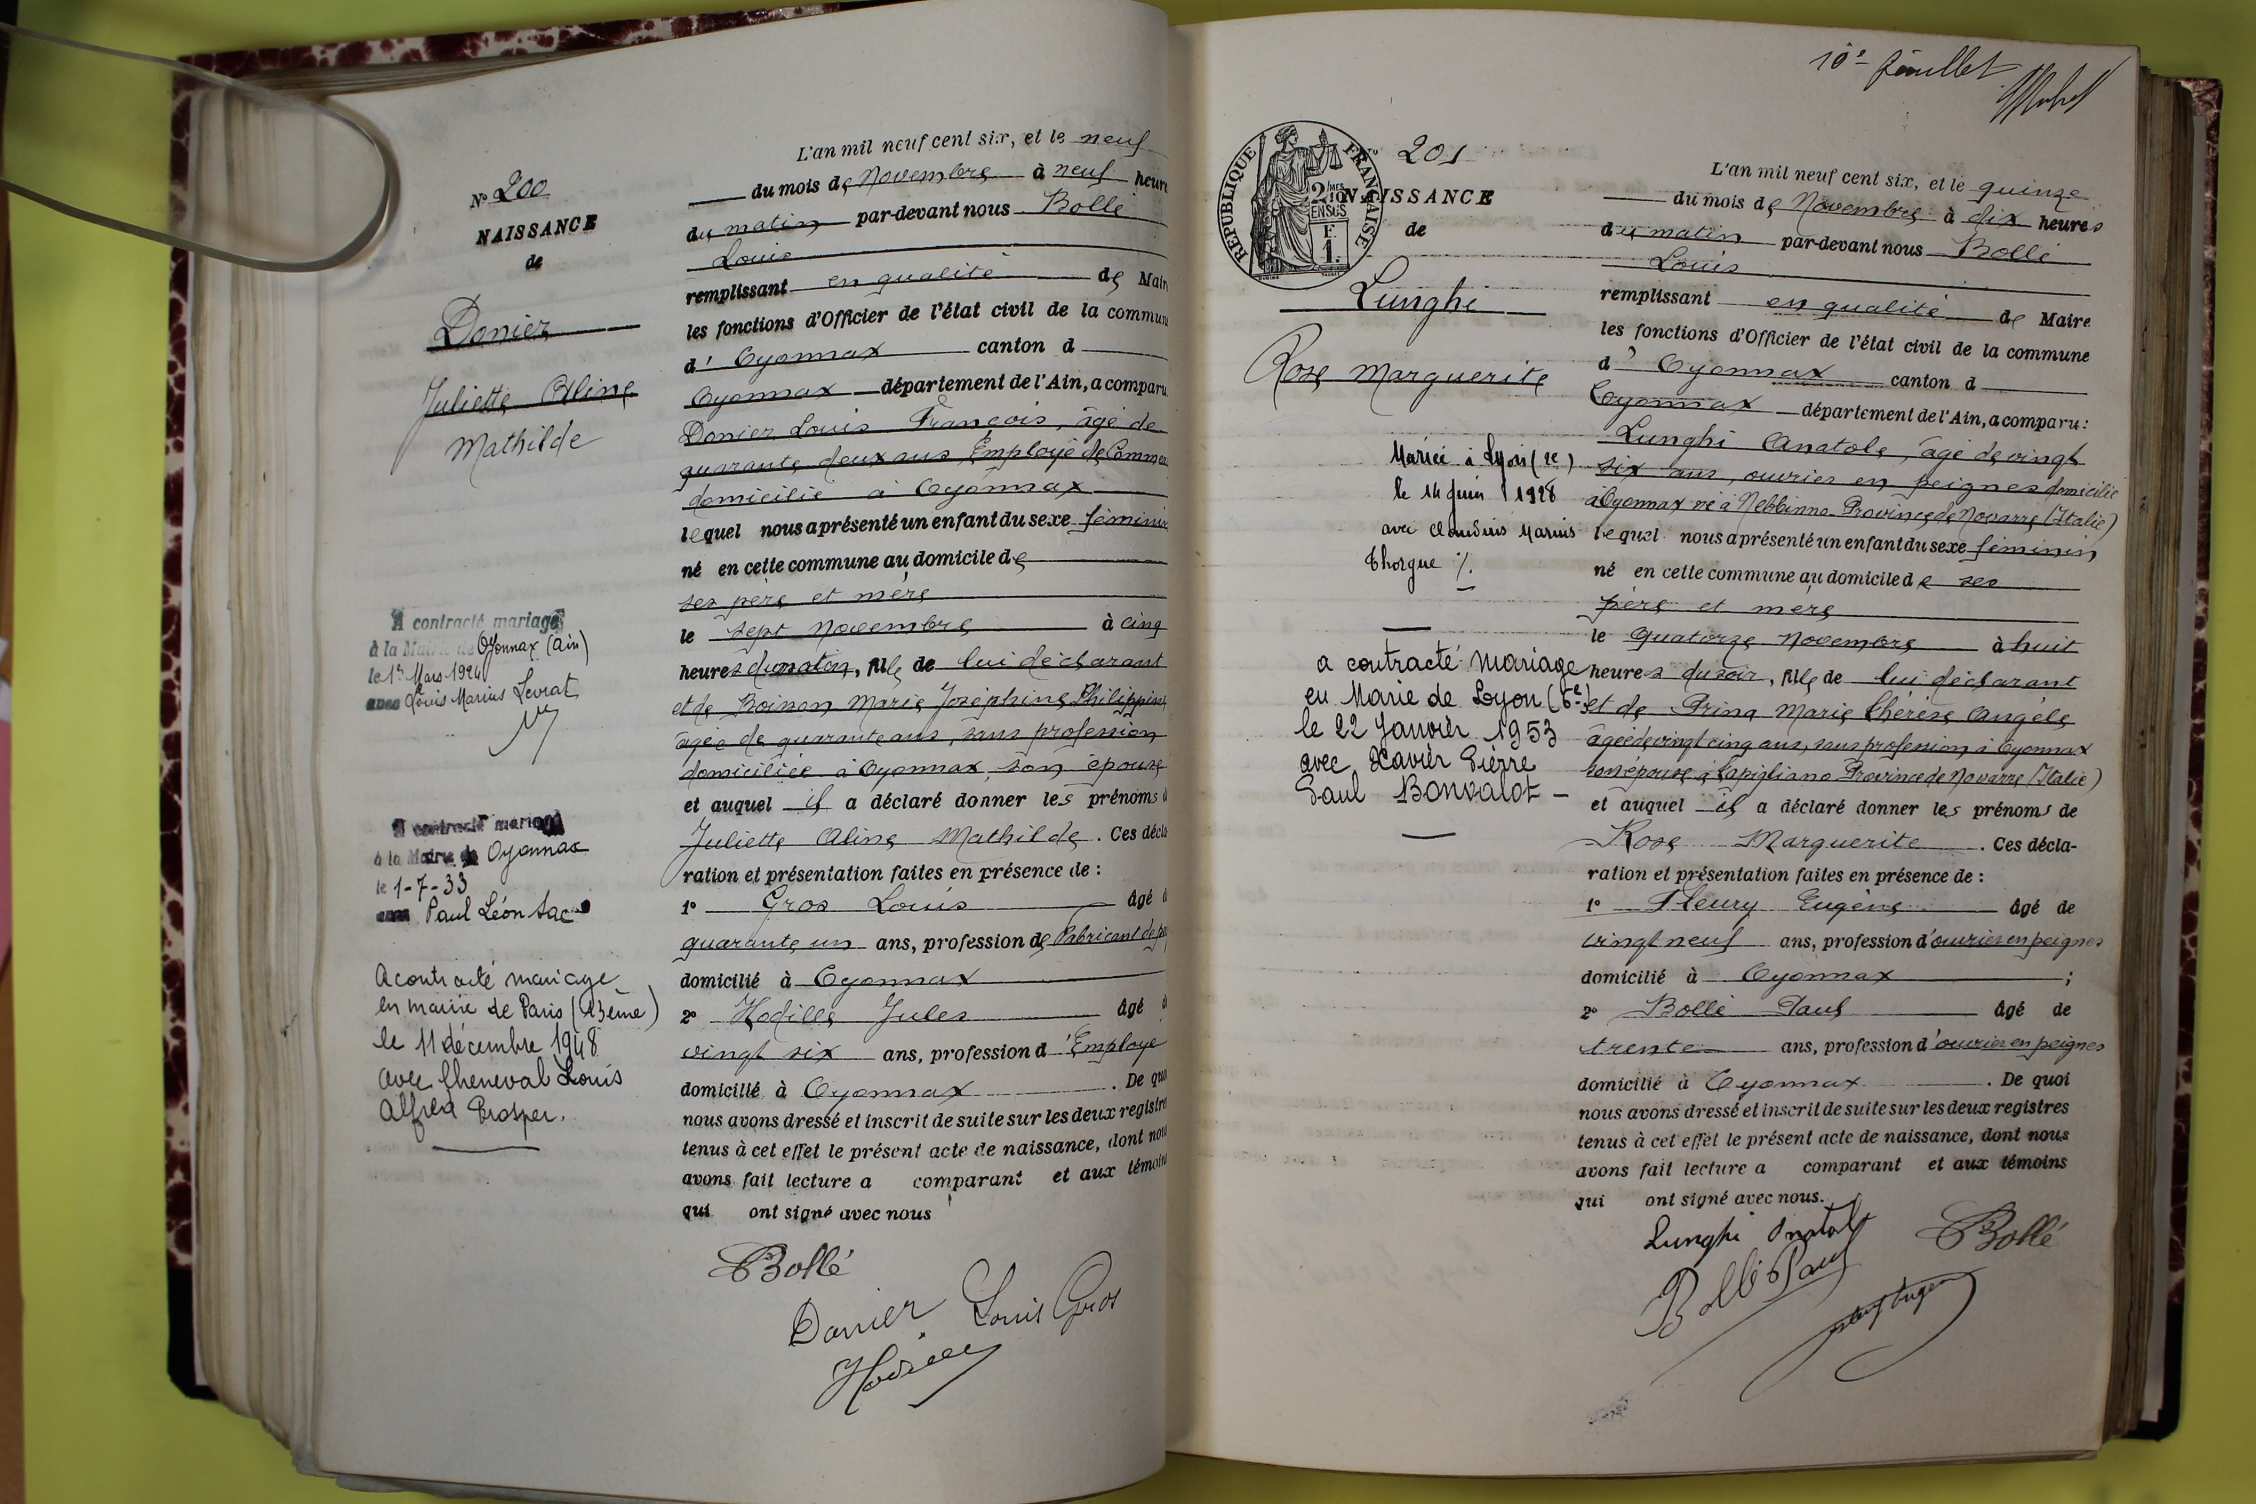 Nº 200
NAISSANCE
de
Donier
Juliette Aline
Mathilde
A contracté mariage
à la Mairie de Oyonnax (Ain)
le 1er Mars 1924
avec Louis Marius Levrat
A contracté mariage
à la Mairie de Oyonnax
le 1-7-33
avec Paul Léon
A contracté mariage
en mairie de Paris (13ème)
le 11 décembre 1948
avec Cheneval Louis
Alfred Prosper.
L'an mil neuf cent six, et le neuf
du mois de Novembre à neuf heure
du matin par-devant nous Bollé
Louis
remplissant en qualité de Mair
les fonctions d'Officier de l'état civil de la commun
d' Oyonnax canton d
Oyonnax département de l'Ain, a comparu
Donier Louis François, âgé de
quarante deux ans Employé de Commer
domicilié à Oyonnax
lequel nous a présenté un enfant du sexe féminin
né en cette commune au domicile de
ses père et mère
le sept Novembre à cinq
heures du matin, fille de lui déclarant
et de Boisson Marie Joséphine Philippine
âgée de quarante ans, sans profession
domiciliée à Oyonnax, son épouse
et auquel il a déclaré donner les prénoms d
Juliette Aline Mathilde. Ces décla
ration et présentation faites en présence de :
1º Gros Louis âgé d
quarante un ans, profession de Fabricant de pe
domicilié à Oyonnax
2º Hodille Jules âgé d
vingt six ans, profession d'Employé
domicilié à Oyonnax. De quo
nous avons dressé et inscrit de suite sur les deux registre
tenus à cet effet le présent acte de naissance, dont nou
avons fait lecture a comparant et aux témoin
qui ont signé avec nous
Bollé
Donier Louis Gros
Hodille
10e feuillet
RÉPUBLIQUE FRANÇAISE
2 10MES
EN SUS
F.
1.
201
NAISSANCE
de
Lunghi
Rose Marguerite
Mariée à Lyon (2e)
le 14 Juin 1928
avec Claudius Marius
Thorgue ./.
a contracté mariage
en Mairie de Lyon (6e)
le 22 Janvier 1953
avec Xavier Pierre
Paul Bonvalot -
L'an mil neuf cent six, et le quinze
du mois de Novembre à dix heures
du matin par-devant nous Bollé
Louis
remplissant en qualité de Maire
les fonctions d'Officier de l'état civil de la commune
d' Oyonnax canton d
Oyonnax département de l'Ain, a comparu :
Lunghi Anatole, âgé de vingt
six ans, ouvrier en peignes domicilié
à Oyonnax né à Nebbinno Province de Novarre (Italie)
lequel nous a présenté un enfant du sexe féminin
né en cette commune au domicile de ses
père et mère
le quatorze Novembre à huit
heures du soir, fille de lui déclarant
et de Prina Marie Thérèse Angèle
âgée de vingt cinq ans, sans profession à Oyonnax
son épouse à Capigliano Province de Novarre (Italie)
et auquel il a déclaré donner les prénoms de
Rose Marguerite. Ces décla-
ration et présentation faites en présence de :
1º Fleury Eugène âgé de
vingt neuf ans, profession d'ouvrier en peignes
domicilié à Oyonnax ;
2º Bollé Paul âgé de
trente ans, profession d'ouvrier en peignes
domicilié à Oyonnax. De quoi
nous avons dressé et inscrit de suite sur les deux registres
tenus à cet effet le présent acte de naissance, dont nous
avons fait lecture a comparant et aux témoins
qui ont signé avec nous.
Lunghi Anatole Bollé
Bollé Paul
Fleury Eugène